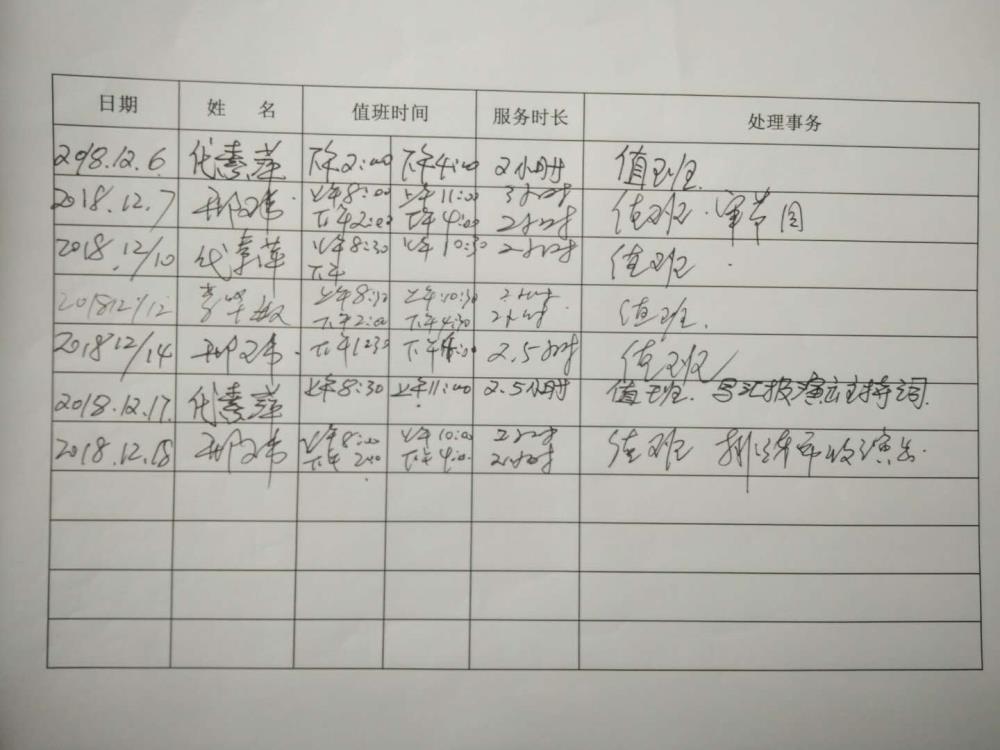 日期 姓 名 值班时间 服务时长 处理事务
2018.12.6 代素萍 下午2:00 下午4:00 2小时 值班.
2018.12.7 上午8:00 上午11:00 3小时 值班.审节目
下午2:00 下午4:00 2小时
2018.12/10 代素萍 上午8:30 上午10:30 2小时 值班.
下午
2018 12/12 上午8:30 上午10:30 2小时 值班.
下午2:00 下午4:30 2小时
2018 12/14 下午1:30 下午4:00 2.5小时 值班
2018.12.17. 代素萍 上午8:30 上午11:00 2.5小时 值班. 写汇报演出主持词.
2018.12.18 上午8:00 上午10:00 2小时 值班 排练
下午2:00 下午4:00 2小时